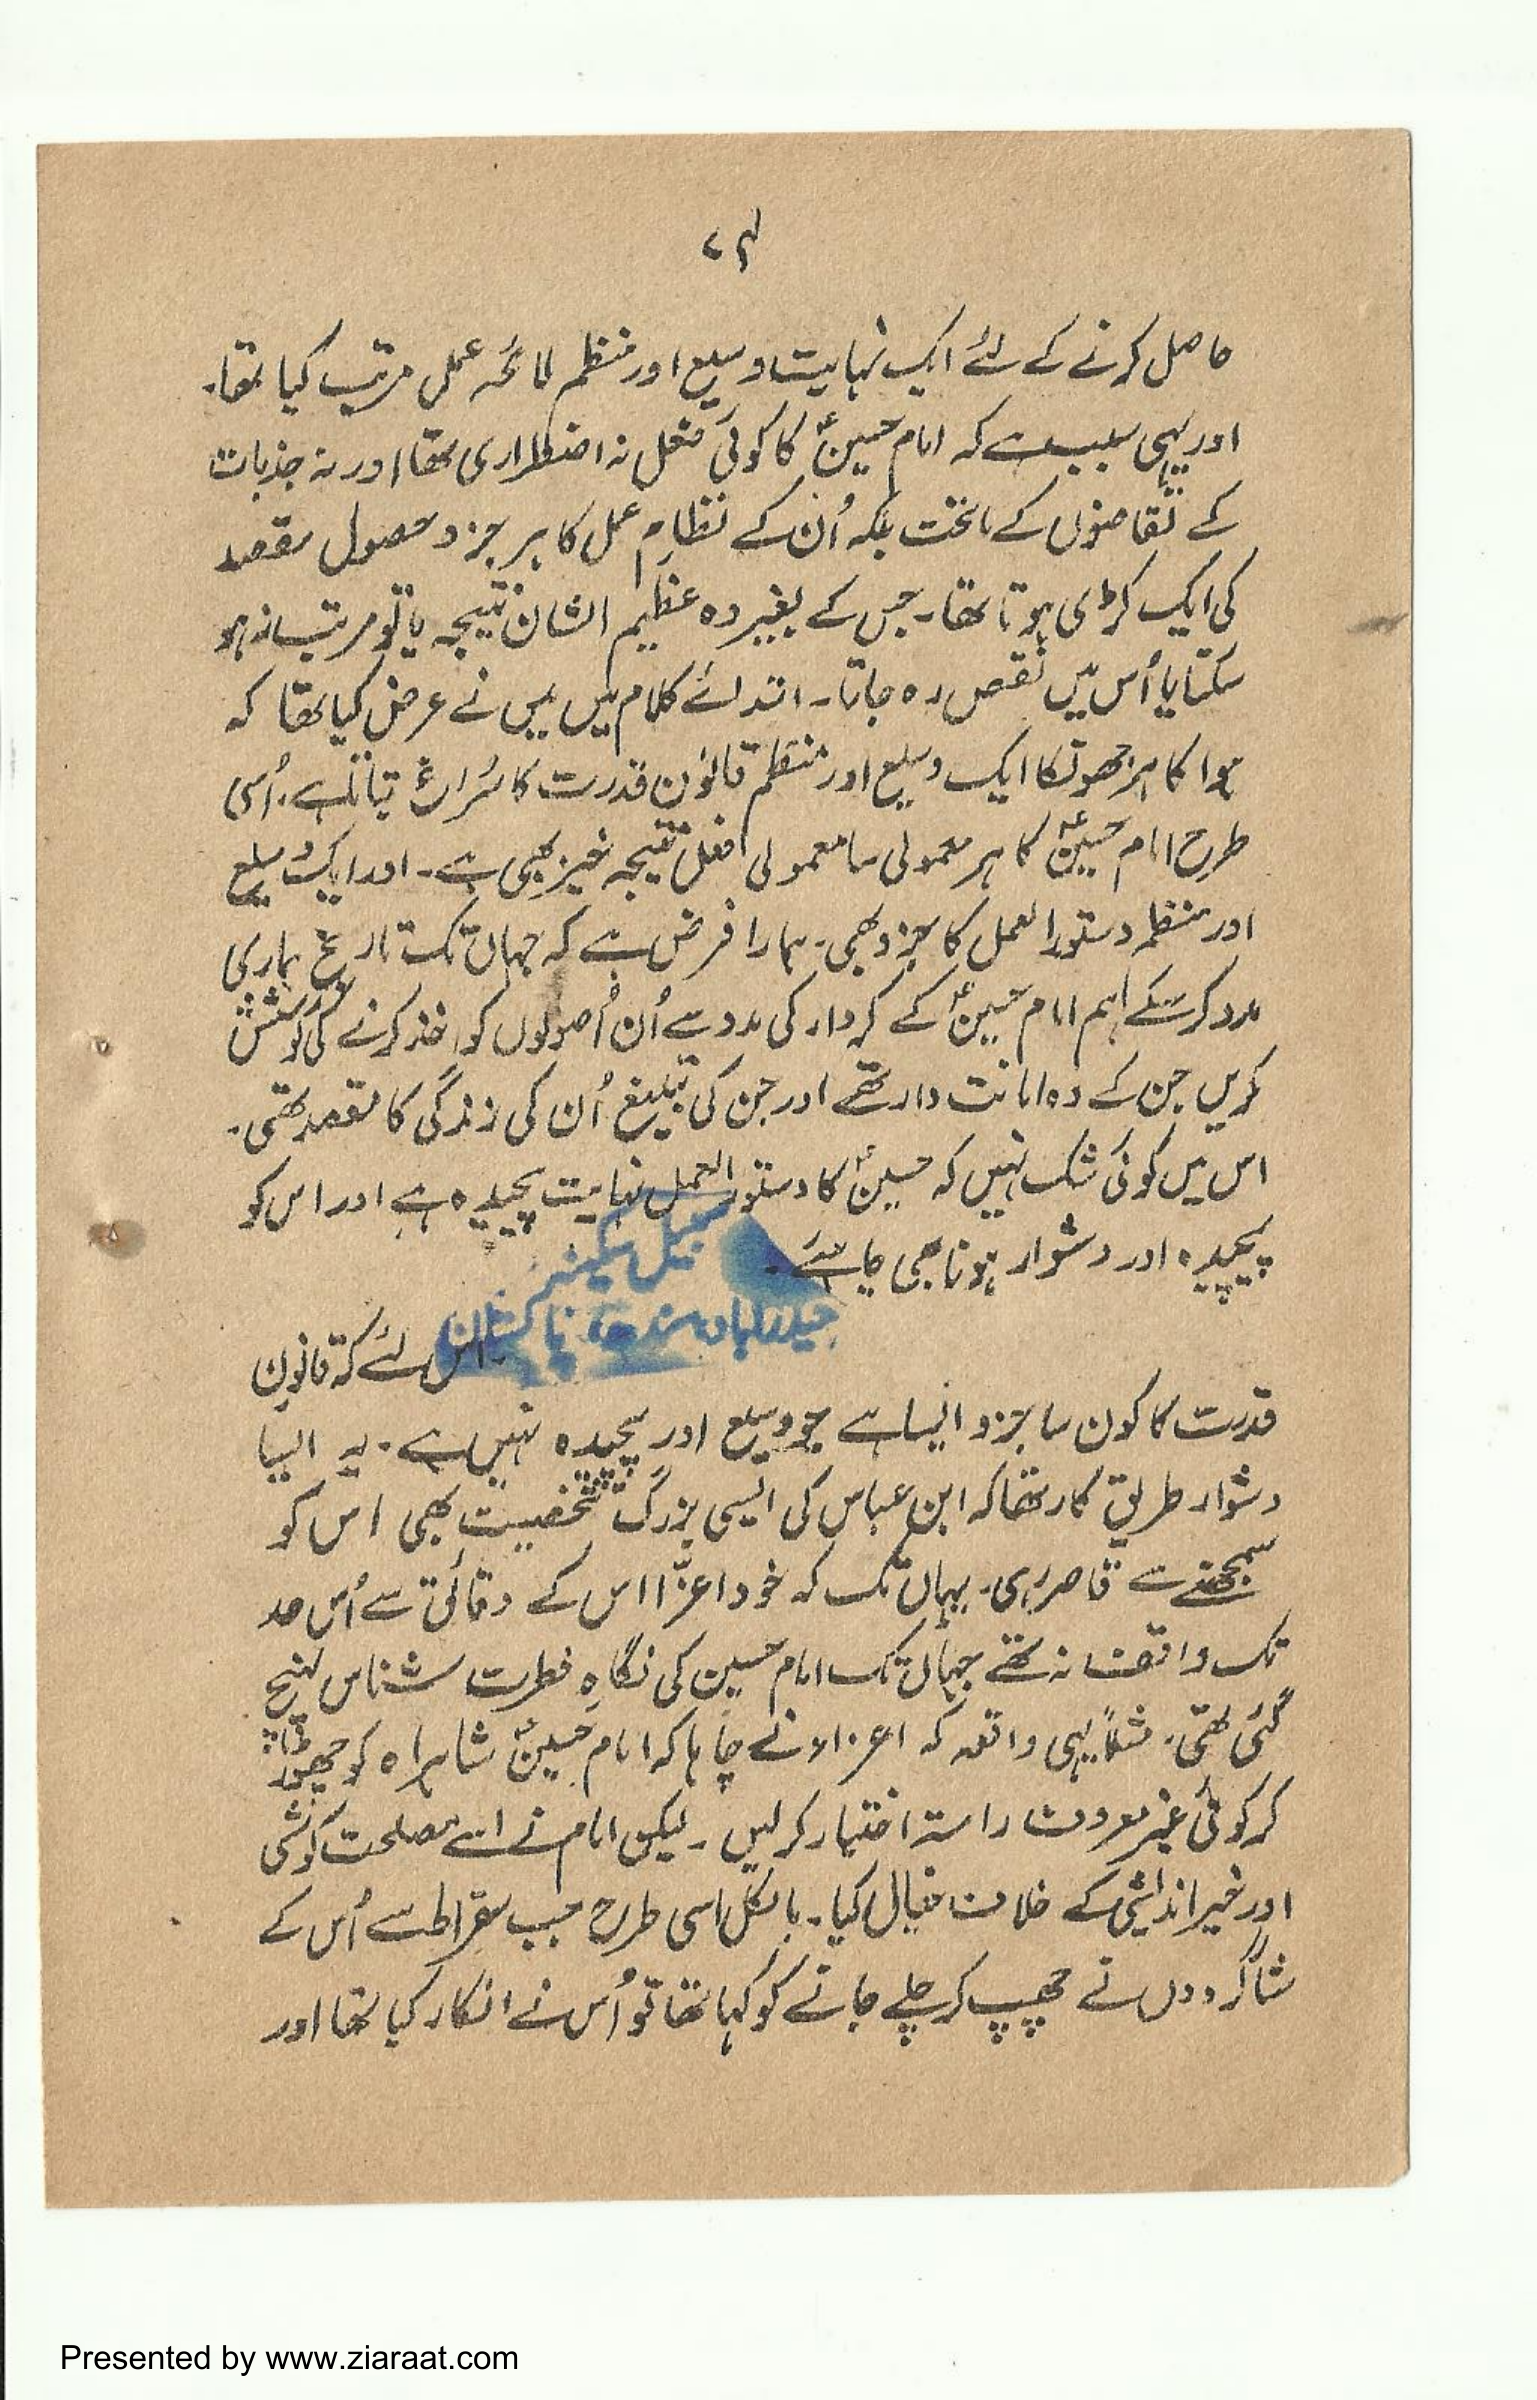 ۴۷
حاصل کرنے کے لئے ایک نہایت وسیع اور منظم لائحہ عمل مرتب کیا تھا۔
اور یہی سبب ہے کہ امام حسینؑ کا کوئی فعل نہ اضطراری تھا اور نہ جذبات
کے تقاضوں کے ماتحت بلکہ اُن کے نظامِ عمل کا ہر جزو حصول مقصد
کی ایک کڑی ہوتا تھا۔ جس کے بغیر وہ عظیم الشان نتیجہ یا تو مرتب نہ ہو
سکتا یا اُس میں نقص رہ جاتا۔ ابتدائے کلام میں میں نے عرض کیا تھا کہ
ہوا کا ہر جھونکا ایک وسیع اور منظم قانونِ قدرت کا سُراغ بتاتا ہے۔ اُسی
طرح امام حسینؑ کا ہر معمولی سا معمولی فعل نتیجہ خیز بھی ہے۔ اور ایک وسیع
اور منظم دستور العمل کا جزو بھی۔ ہمارا فرض ہے کہ جہاں تک تاریخ ہماری
مدد کر سکے ہم امام حسینؑ کے کردار کی مدد سے اُن اُصولوں کو اخذ کرنے کی کوشش
کریں جن کے وہ امانت دار تھے اور جن کی تبلیغ اُن کی زندگی کا مقصد تھی۔
اس میں کوئی شک نہیں کہ حسینؑ کا دستور العمل نہایت پیچیدہ ہے اور اس کو
پیچیدہ اور دشوار ہونا بھی چاہئے۔
سبیل سکینہ
حیدرآباد سندھ پاکستان
اس لئے کہ قانون
قدرت کا کون سا جزو ایسا ہے جو وسیع اور پیچیدہ نہیں ہے۔ یہ ایسا
دشوار طریقِ کار تھا کہ ابن عباس کی ایسی بزرگ شخصیت بھی اس کو
سمجھنے سے قاصر رہی۔ یہاں تک کہ خود اعزّا اس کے دقائق سے اُس حد
تک واقف نہ تھے جہاں تک امام حسین کی نگاہِ فطرت شناس پہنچ
گئی تھی۔ مثلاً یہی واقعہ کہ اعزا نے چاہا کہ امام حسینؑ شاہراہ کو چھوڑ
کر کوئی غیر معروف راستہ اختیار کر لیں۔ لیکن امام نے اسے مصلحت کوشی
اور خیر اندیشی کے خلاف خیال کیا۔ بالکل اسی طرح جب سقراط سے اُس کے
شاگردوں نے چھپ کر چلے جانے کو کہا تھا تو اُس نے انکار کیا تھا اور
Presented by www.ziaraat.com